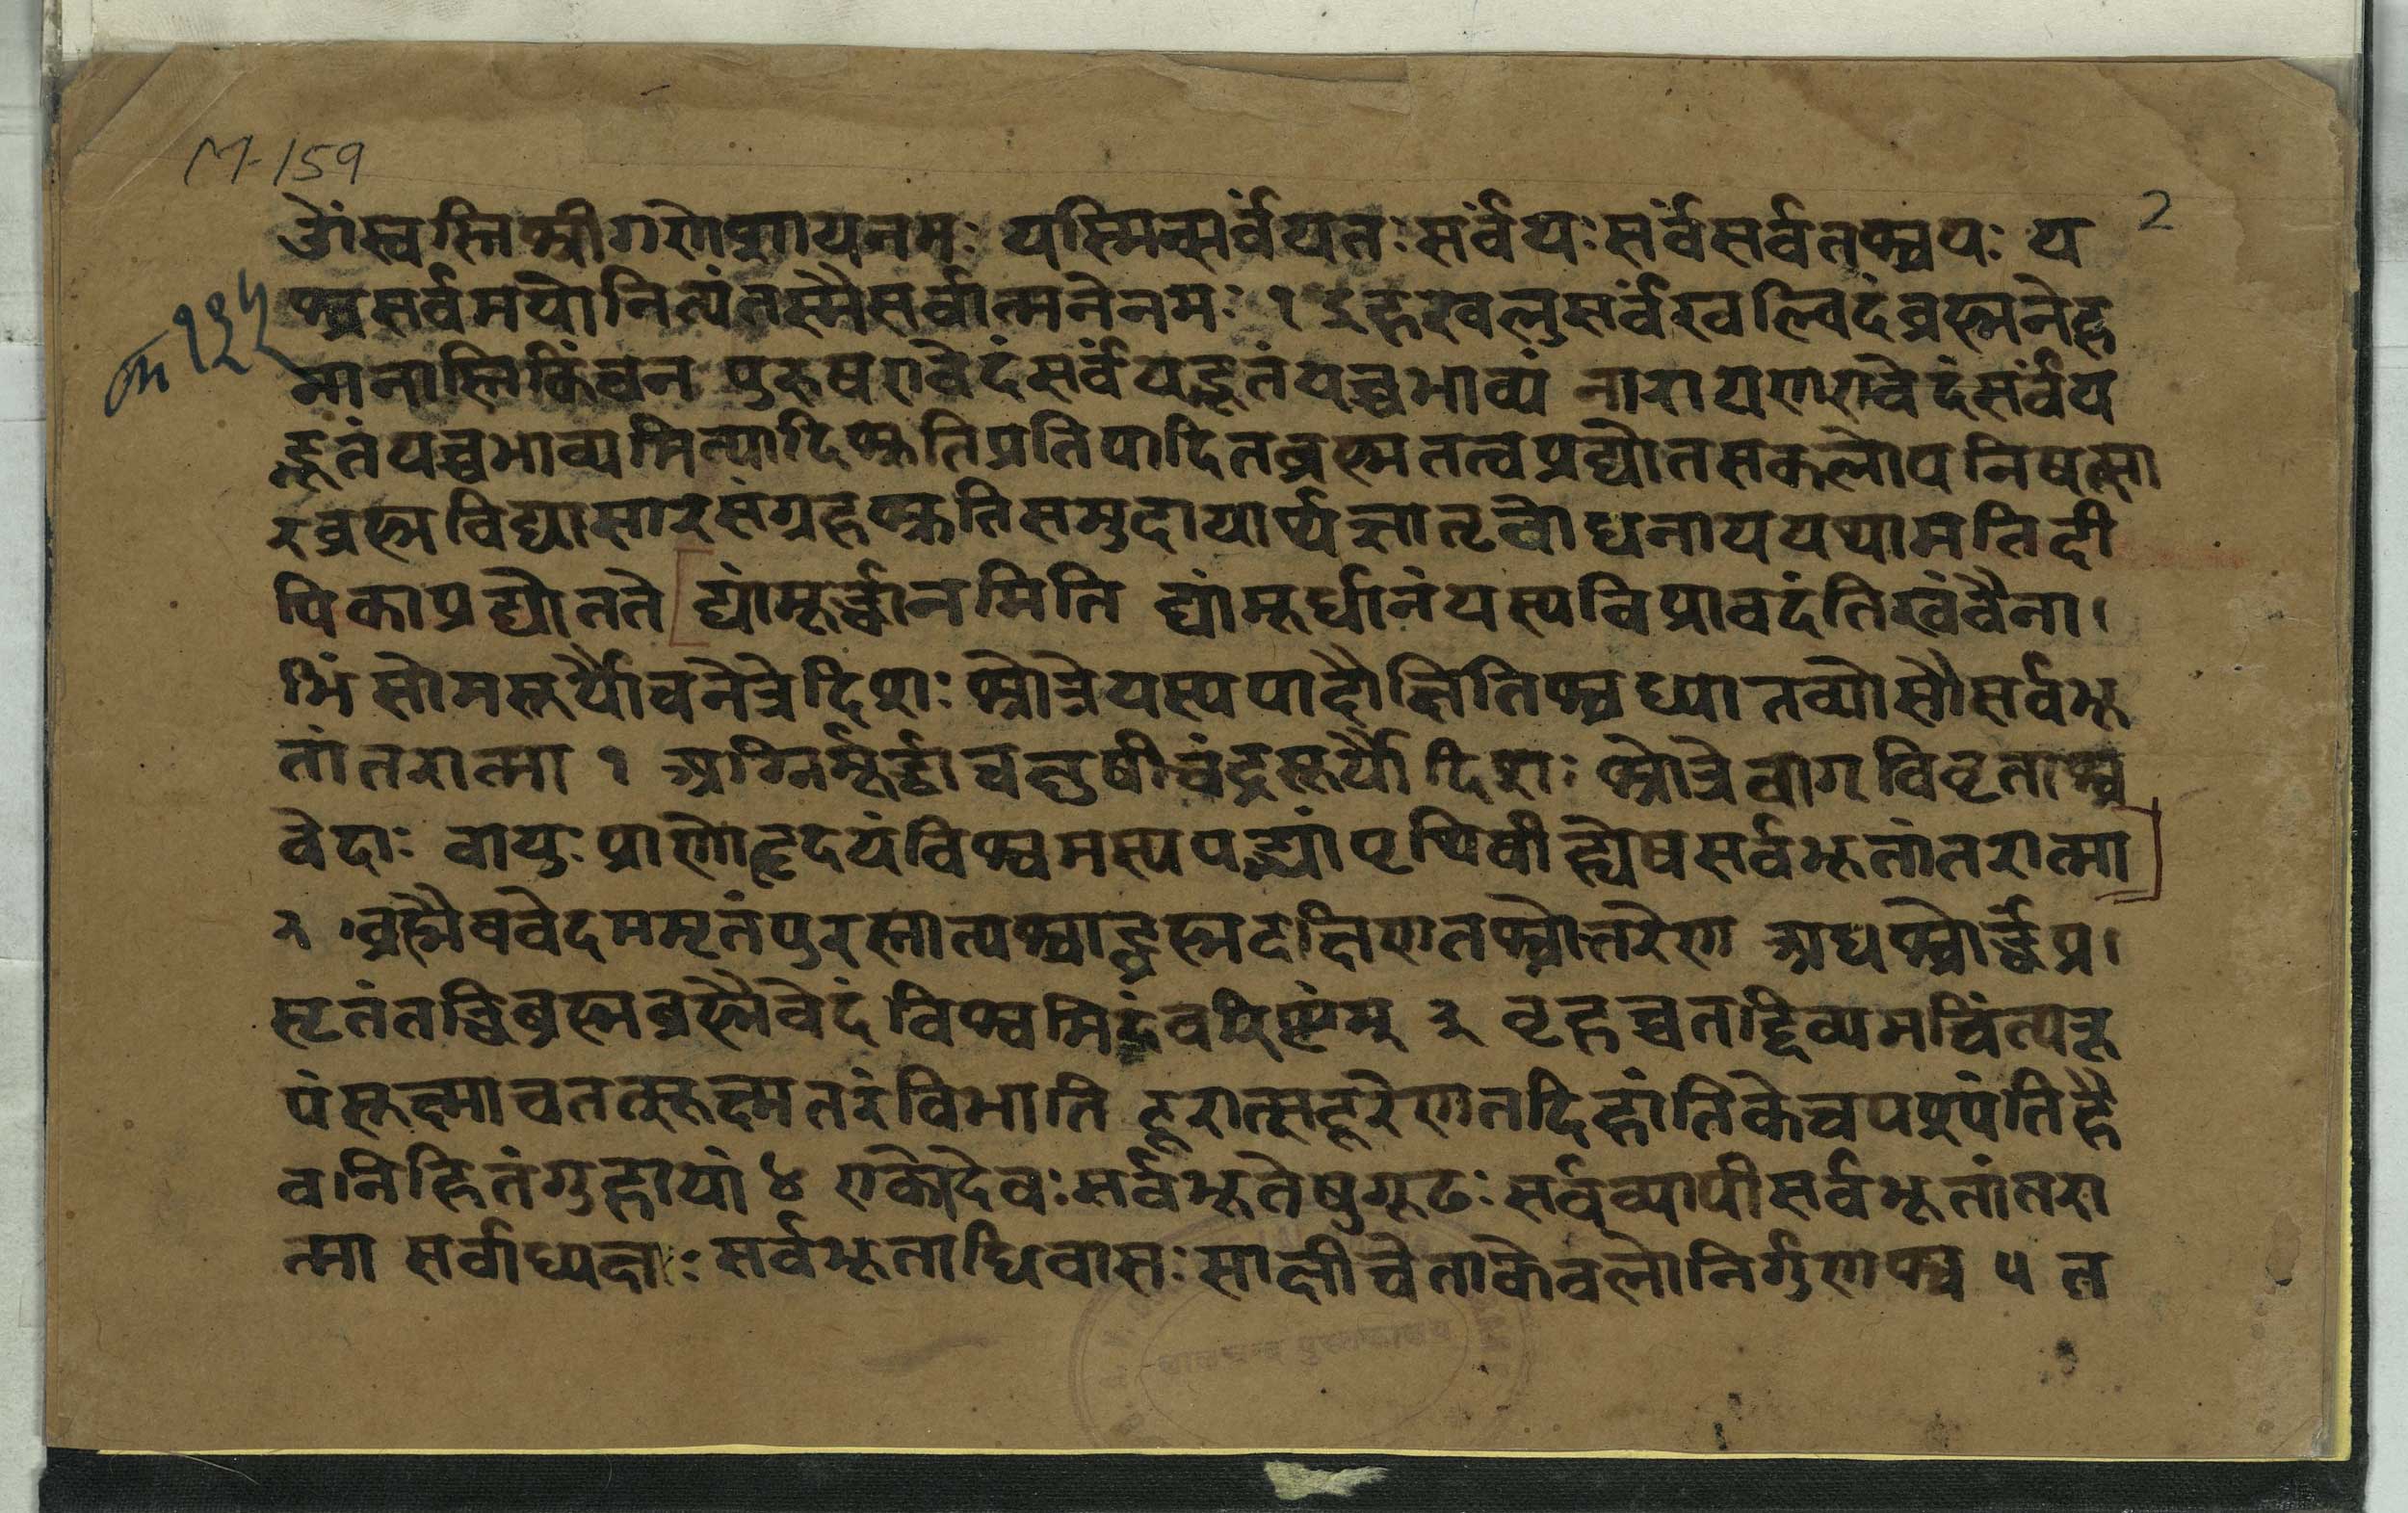 M-159
2
म १३५
ओंस्वस्तिश्रीगणेशायनमः यस्मिन्सर्वंयतःसर्वंयःसर्वंसर्वतश्चयः य
श्चसर्वमयोनित्यंतस्मैसर्वात्मनेनमः १ इहखलुसर्वंखल्विदंब्रह्मनेह
नानास्तिकिंचन पुरुषएवेदंसर्वंयद्भूतंयच्चभाव्यं नारायणएवेदंसर्वंय
द्भूतंयच्चभाव्यमित्यादिश्रुतिप्रतिपादितब्रह्मतत्वप्रद्योतसकलोपनिषत्सा
रब्रह्मविद्यासारसंग्रहश्रुतिसमुदायार्थज्ञातृबोधनाययथामतिदी
पिकाप्रद्योतते [द्यांमूर्द्धानमिति द्यांमूर्धानंयस्यविप्रावदंतिखंवैना।
भिं सोमसूर्यौचनेत्रेदिशः श्रोत्रेयस्यपादौक्षितिश्चध्यातव्योसौसर्वभू
तांतरात्मा १ अग्निर्मूर्द्धाचक्षुषीचंद्रसूर्यौदिशः श्रोत्रेवागविवृताश्च
वेदाः वायुःप्राणोहृदयंविश्वमस्यपद्भ्यांपृथिवीह्येषसर्वभूतांतरात्मा]
२ ब्रह्मैषवेदममृतंपुरस्तात्पश्चाद्ब्रह्मदक्षिणतश्चोत्तरेण अधश्चोर्द्ध्वंप्र।
सृतंतद्धिब्रह्मब्रह्मैवेदंविश्वमिदंवरिष्टंम् ३ बृहच्चतद्दिव्यमचिंत्यरू
पंसूक्ष्माचतत्सूक्ष्मतरंविभाति दूरात्सुदूरेणतदिहांतिकेचपश्यंतिहै
वनिहितंगुहायां ४ एकोदेवःसर्वभूतेषुगूढःसर्वव्यापीसर्वभूतांतरा
त्मा सर्वाध्यक्षः सर्वभूताधिवासःसाक्षीचेताकेवलोनिर्गुणश्च ५ त